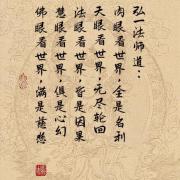 弘一法师道：
肉眼看世界，全是名利
天眼看世界，无尽轮回
法眼看世界，皆是因果
慧眼看世界，俱是心幻
佛眼看世界，满是慈悲